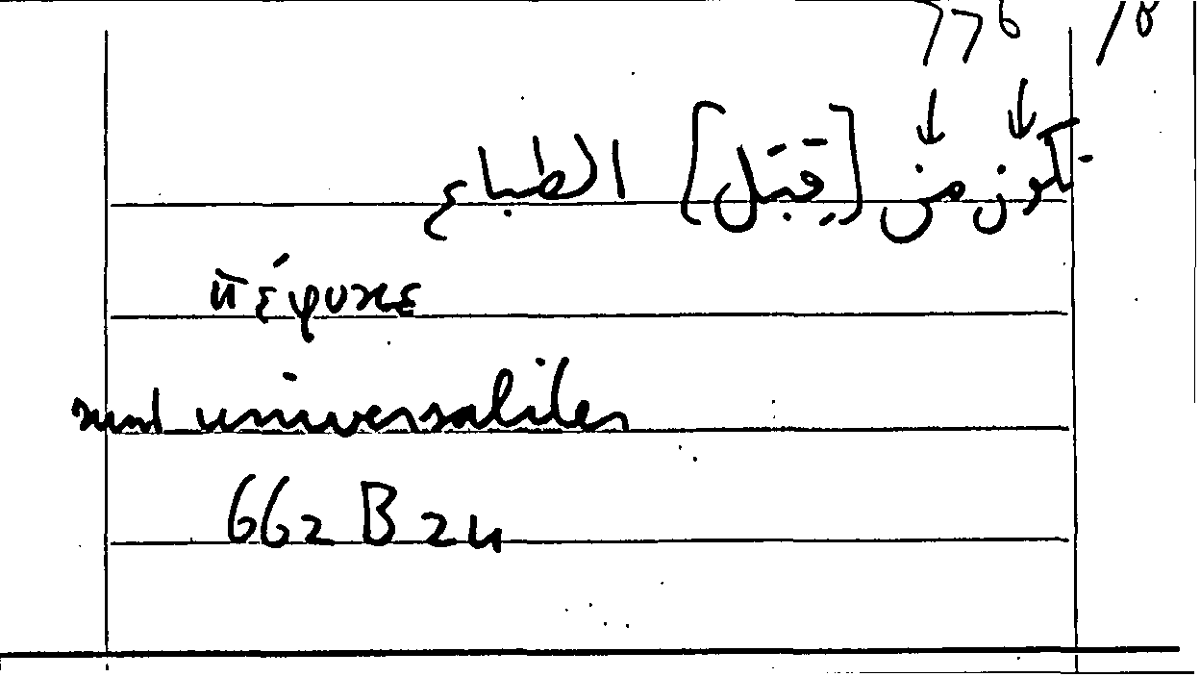 776 /8
تكون من [قِبَل] الطباع
πέφυκε
sunt universaliter
662 B 24